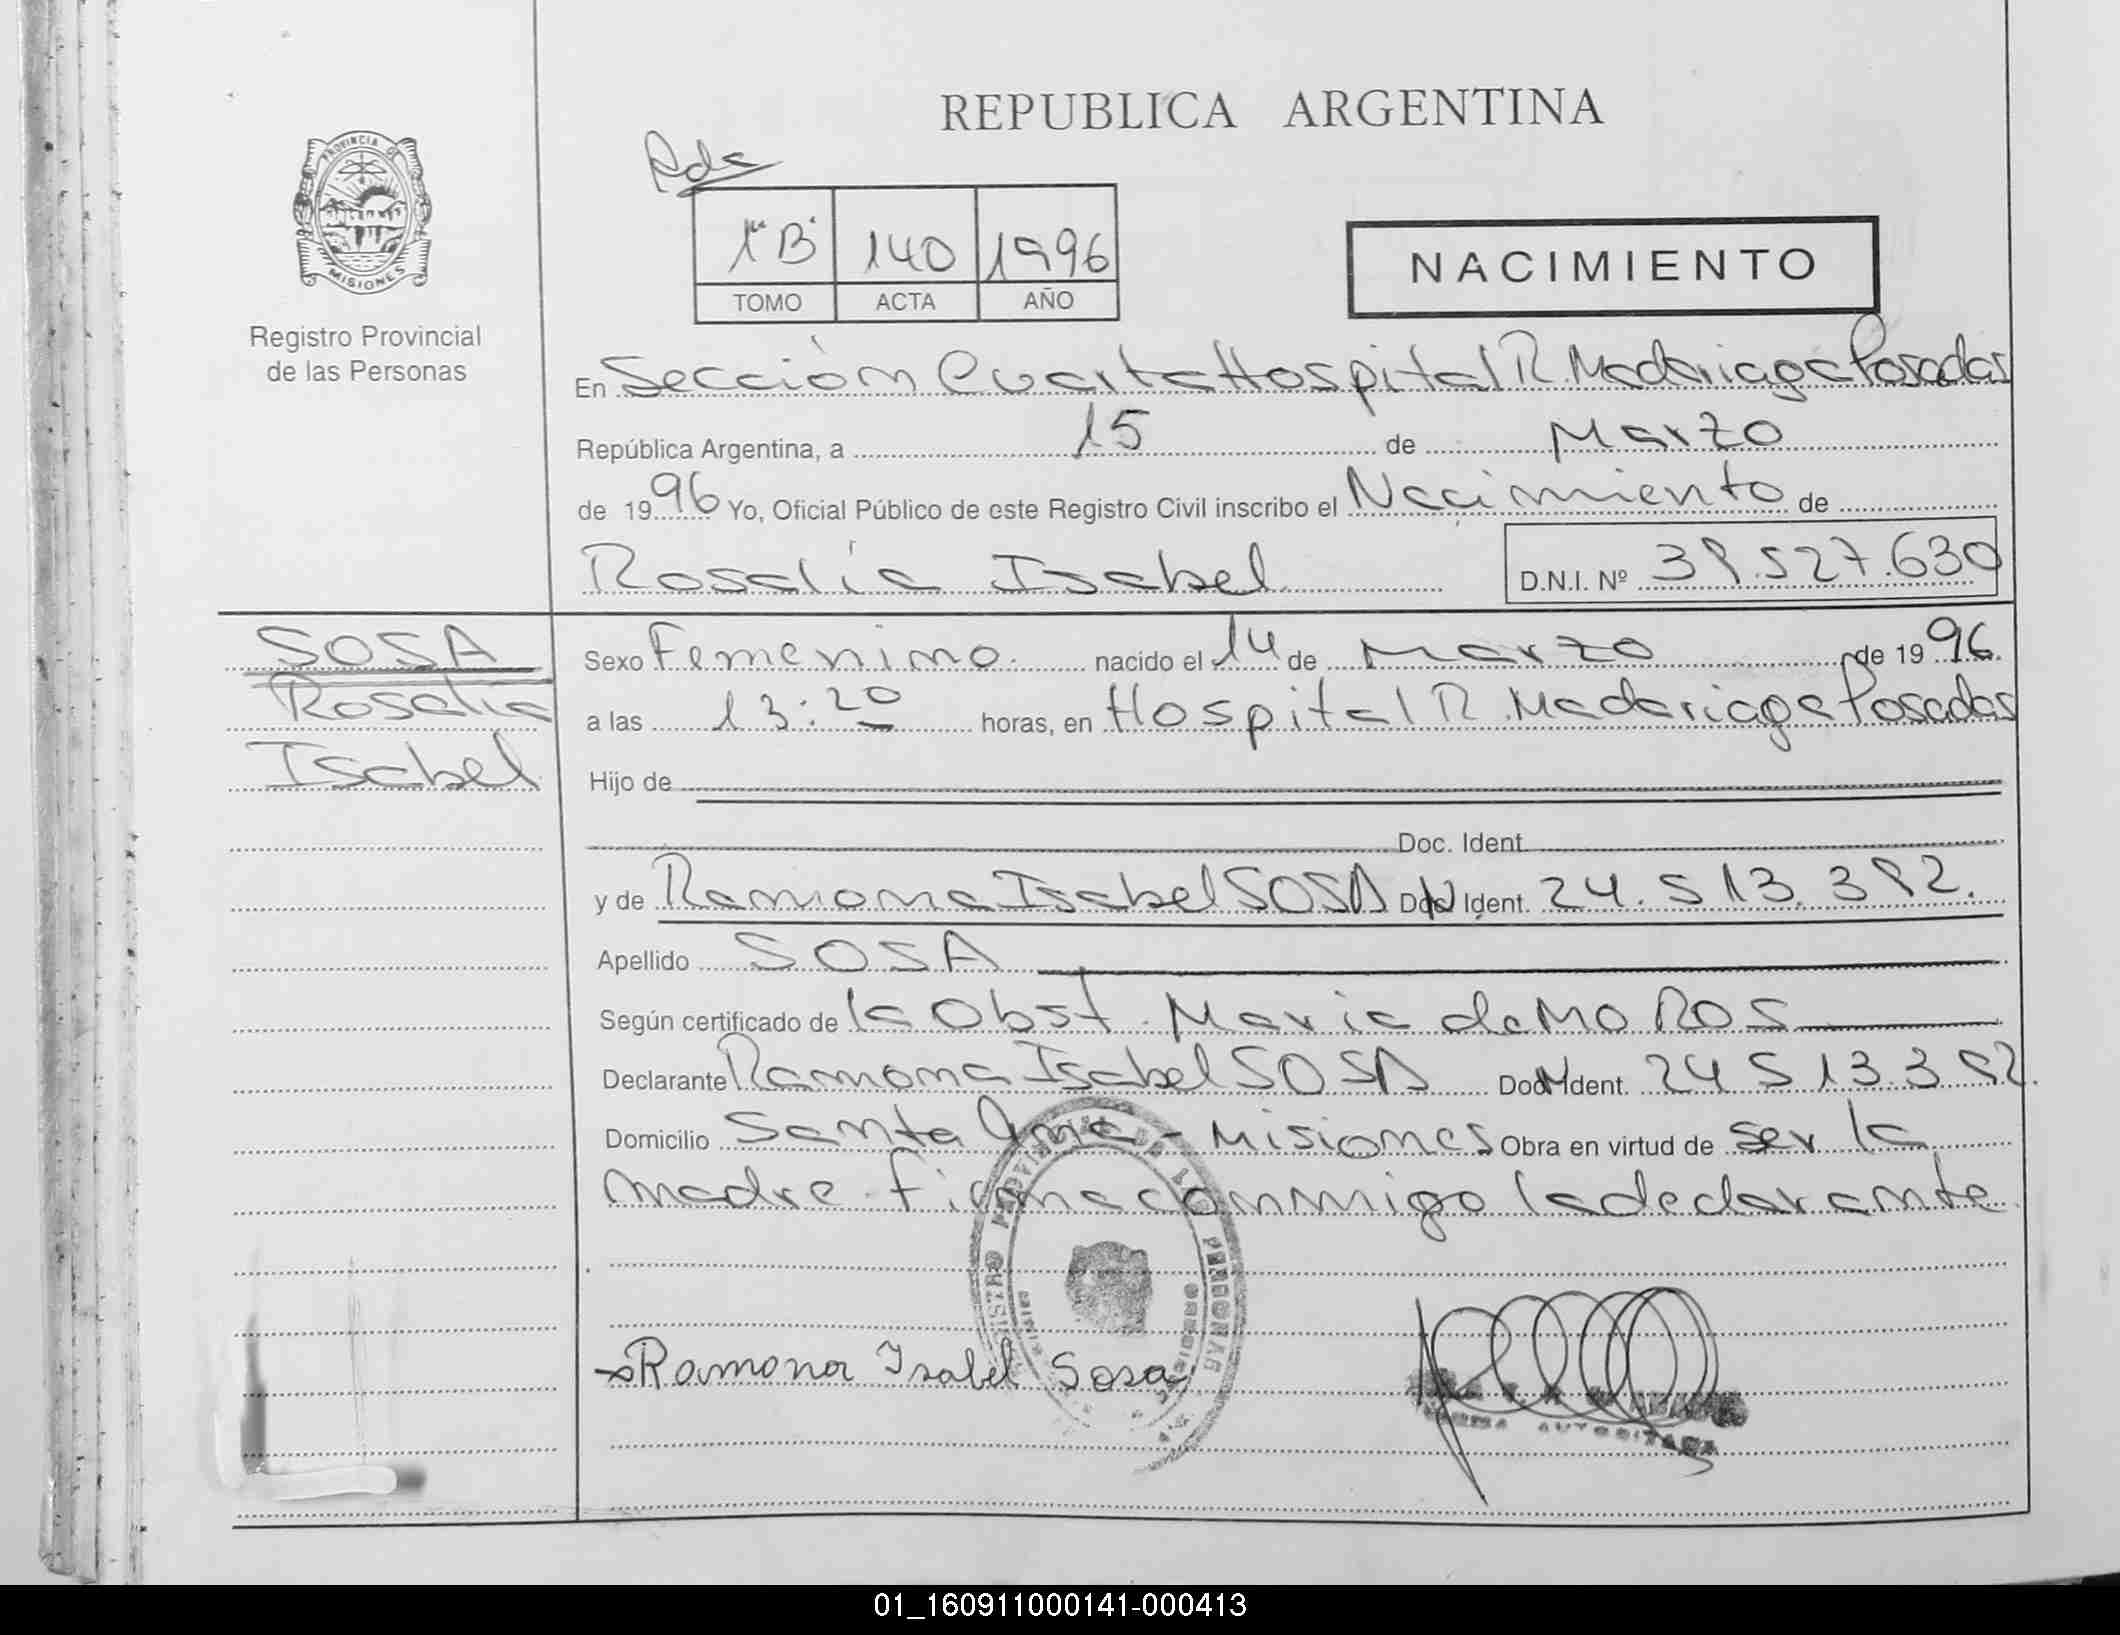 REPUBLICA ARGENTINA
PROVINCIA DE
MISIONES
Registro Provincial
de las Personas
Pds
1º "B" 140 1996
TOMO ACTA AÑO
NACIMIENTO
En Sección Cuarta Hospital R. Madariaga Posadas
República Argentina, a 15 de Marzo
de 1996 Yo, Oficial Público de este Registro Civil inscribo el Nacimiento de
Rosalía Isabel D.N.I. Nº 39.527.630
SOSA
Rosalia
Isabel
Sexo Femenino nacido el 14 de Marzo de 1996
a las 13:20 horas, en Hospital R. Madariaga Posadas
Hijo de
Doc. Ident.
y de Ramona Isabel SOSA Doc. Ident. 24.513.392.
Apellido SOSA
Según certificado de la Obst. Maria de MOROS
Declarante Ramona Isabel SOSA Doc. Ident. 24.513.392.
Domicilio Santa Ana - Misiones Obra en virtud de ser la
madre. Firma conmigo la declarante.
REGISTRO PROVINCIAL DE LAS PERSONAS
Ramona Isabel Sosa
AUTORIZADA
01_160911000141-000413